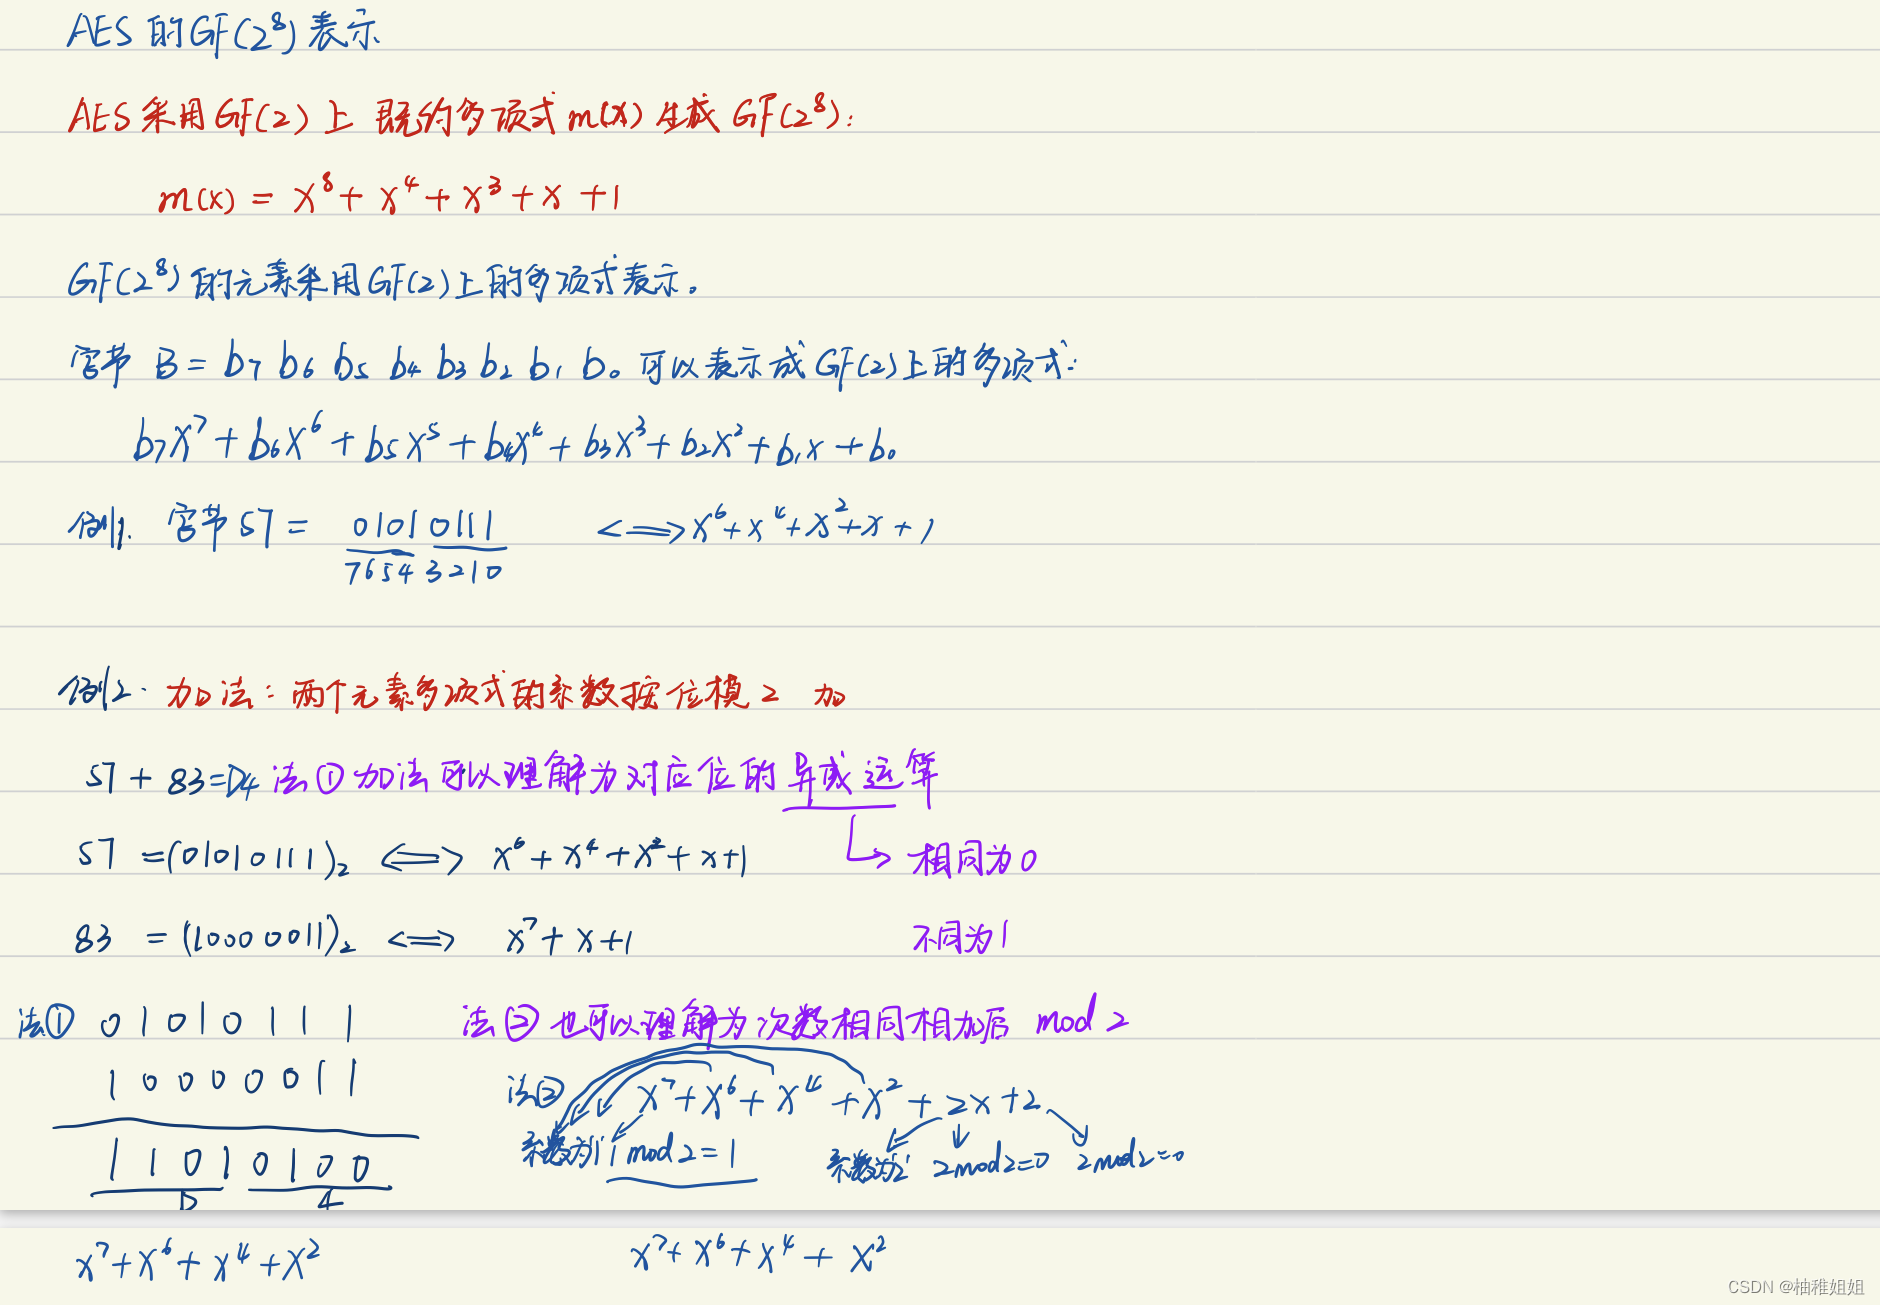 AES 的GF(2⁸)表示
AES采用GF(2)上 既约多项式m(x)生成 GF(2⁸):
m(x) = x⁸ + x⁴ + x³ + x + 1
GF(2⁸)的元素采用GF(2)上的多项式表示。
字节 B = b₇ b₆ b₅ b₄ b₃ b₂ b₁ b₀ 可以表示成GF(2)上的多项式:
b₇x⁷ + b₆x⁶ + b₅x⁵ + b₄x⁴ + b₃x³ + b₂x² + b₁x + b₀
例1. 字节57 = 01010111 <=> x⁶ + x⁴ + x² + x + 1
7654 3210
例2. 加法: 两个元素多项式的系数按位模2 加
57 + 83 = D4 法① 加法可以理解为对应位的异或运算
57 = (01010111)₂ <=> x⁶ + x⁴ + x² + x + 1 → 相同为0
83 = (10000011)₂ <=> x⁷ + x + 1 不同为1
法① 0 1 0 1 0 1 1 1 法② 也可以理解为次数相同相加后 mod 2
1 0 0 0 0 0 1 1 法② x⁷ + x⁶ + x⁴ + x² + 2x + 2
1 1 0 1 0 1 0 0 系数为'1' 1 mod 2 = 1 系数为'2' 2 mod 2 = 0 2 mod 2 = 0
D 4
x⁷ + x⁶ + x⁴ + x² x⁷ + x⁶ + x⁴ + x²
CSDN @柚稚姐姐